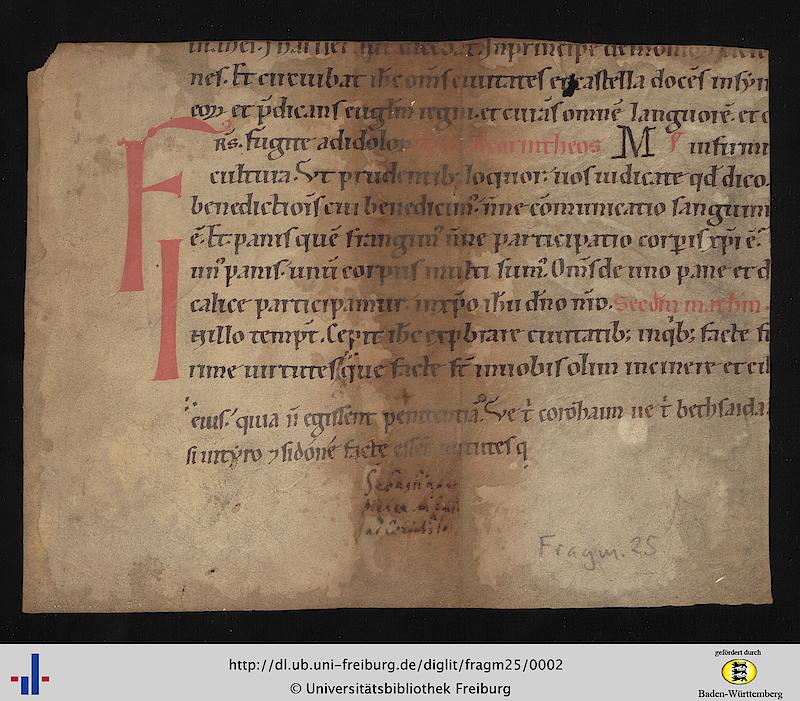 In principe demon
nes. Et circuibat ihc om̄s ciuitates et castella docēs in syn
eoꝝ et p̄dicans euḡlm regni. et curās omnē languorē. et o
FRS. fugite ad idoloꝝ Ad Chorintheos M infirmi
cultura. Vt prudentib; loquor: uos iudicate qđ dico.
benedictiōis cui benedicim᷒. n̄ne cōmunicatio sanguini
ē. Et panis quē frangim᷒ n̄ne participatio corꝑis xp̄i ē.
un᷒ panis. unū corpus multi sum᷒. Om̄s de uno pane et d
calice participamur in xp̄o ihū dn̄o nr̄o. Secdm mathm
IN illo tempr̄. Cepit ihc exprbrare ciuitatib; in qb; facte s̄
rime uirtutes
que facte s̄t in uobis olim in cinere et cil
eius. quia n̄ egissent penitentiā. Ve t̄ corozhaim ue t̄ bethsaida
si in tyro ⁊ sidone facte essent uirtutes q
Fragm. 25
http://dl.ub.uni-freiburg.de/diglit/fragm25/0002
© Universitätsbibliothek Freiburg
gefördert durch
Baden-Württemberg